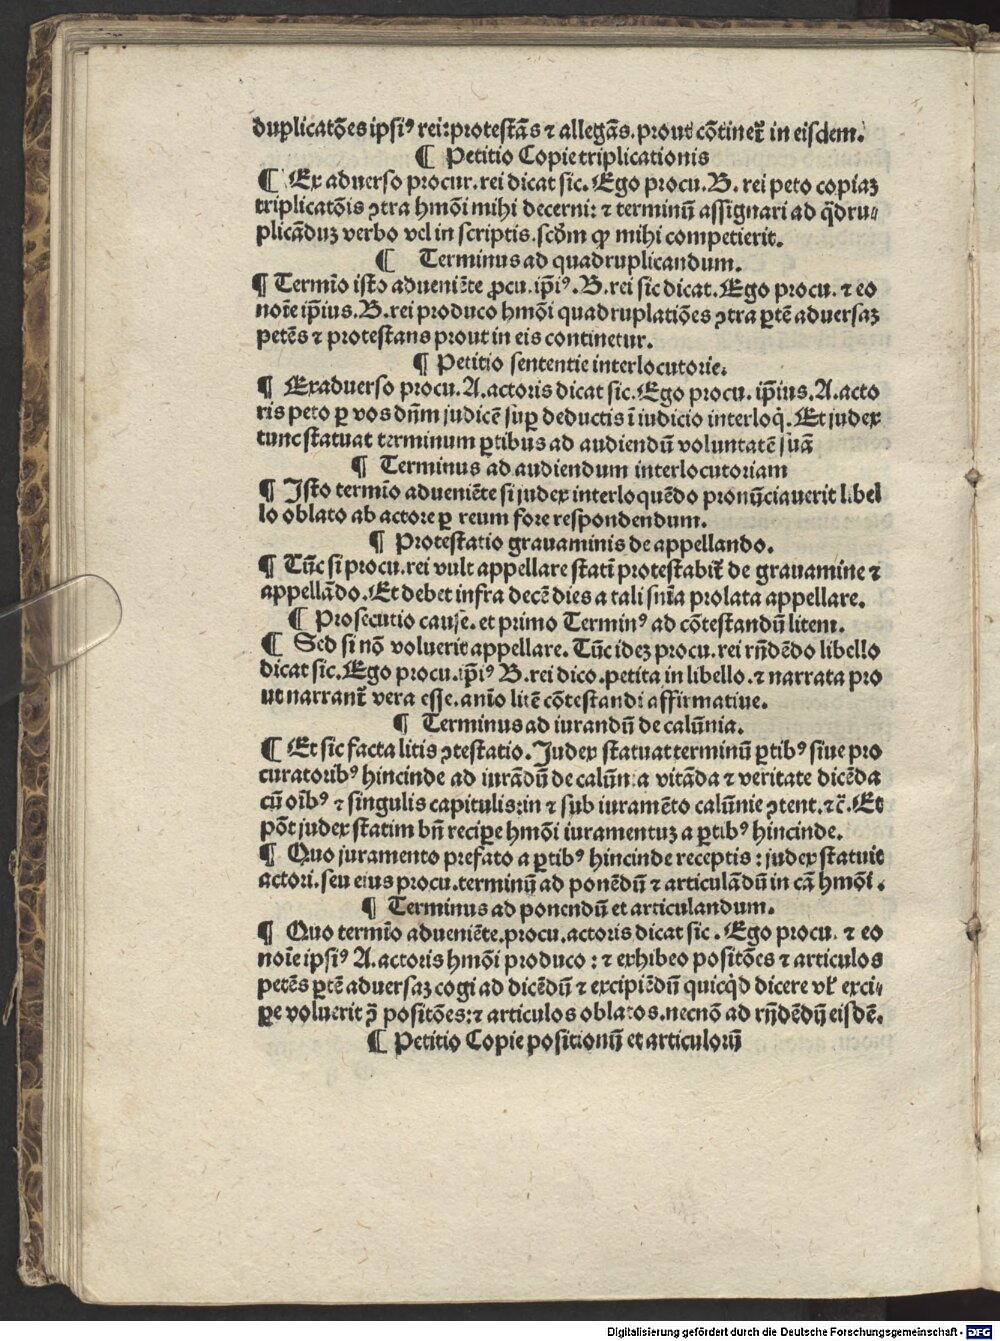 duplicatões ipsiꝰ rei: protestãs ⁊ allegãs. prout cõtinet᷑ in eisdem.
¶ Petitio Copie triplicationis
¶ Ex aduerso procur. rei dicat sic. Ego procu. B. rei peto copiaꝫ
triplicatõis ꝯtra hmõi mihi decerni: ⁊ terminũ assignari ad q̃dru⸗
plicãduꝫ verbo vel in scriptis. scd̃m ꝙ mihi competierit.
¶ Terminus ad quadruplicandum.
¶ Termĩo isto adueniẽte ꝓcu. ip̃iꝰ. B. rei sic dicat. Ego procu. ⁊ eo
noĩe ip̃ius. B. rei produco hmõi quadruplatiões ꝯtra ꝑtẽ aduersaꝫ
petẽs ⁊ protestans prout in eis continetur.
¶ Petitio sententie interlocutorie.
¶ Exaduerso procu. A. actoris dicat sic. Ego procu. ip̃ius. A. acto
ris peto ꝑ vos dñm judicẽ suꝑ deductis ĩ iudicio interloq̇. Et judex
tunc statuat terminum ꝑtibus ad audiendũ voluntatẽ suã
¶ Terminus ad audiendum interlocutoriam
¶ Isto termĩo adueniẽte si judex interloquẽdo pronũciauerit libel
lo oblato ab actore ꝑ reum fore respondendum.
¶ Protestatio grauaminis de appellando.
¶ Tũc si procu. rei vult appellare statĩ protestabit᷑ de grauamine ⁊
appellãdo. Et debet infra decẽ dies a tali snĩa prolata appellare.
¶ Prosecutio cause. et primo Terminꝰ ad cõtestandũ litem.
¶ Sed si nõ voluerit appellare. Tũc ideꝫ procu. rei rñdẽdo libello
dicat sic. Ego procu. ip̃iꝰ B. rei dico. petita in libello. ⁊ narrata pro
ut narrant᷑ vera esse. anĩo litẽ cõtestandi affirmatiue.
¶ Terminus ad iurandũ de calũnia.
¶ Et sic facta litis ꝯtestatio. Judex statuat terminũ ꝑtibꝰ siue pro
curatoribꝰ hincinde ad iurãdũ de calũnia vitãda ⁊ veritate dicẽda
cũ oĩbꝰ ⁊ singulis capitulis: in ⁊ sub iuramẽto calũnie ꝯtent. ⁊c̃. Et
põt judex statim bñ recipe hmõi iuramentuꝫ a ꝑtibꝰ hincinde.
¶ Quo juramento prefato a ꝑtibꝰ hincinde receptis: judex statuit
actori. seu eius procu. terminũ ad ponẽdũ ⁊ articulãdũ in cã hmõi.
¶ Terminus ad ponendũ et articulandum.
¶ Quo termĩo adueniẽte. procu. actoris dicat sic. Ego procu. ⁊ eo
noĩe ipsiꝰ A. actoris hmõi produco: ⁊ exhibeo positões ⁊ articulos
petẽs ꝑtẽ aduersaꝫ cogi ad dicẽdũ ⁊ excipiẽdũ quicq̃d dicere vl̃ exci⸗
ꝑe voluerit ꝓ̃ positões: ⁊ articulos oblatos. necnõ ad rñdẽdũ eisdẽ.
¶ Petitio Copie positionũ et articulorũ
Digitalisierung gefördert durch die Deutsche Forschungsgemeinschaft - DFG